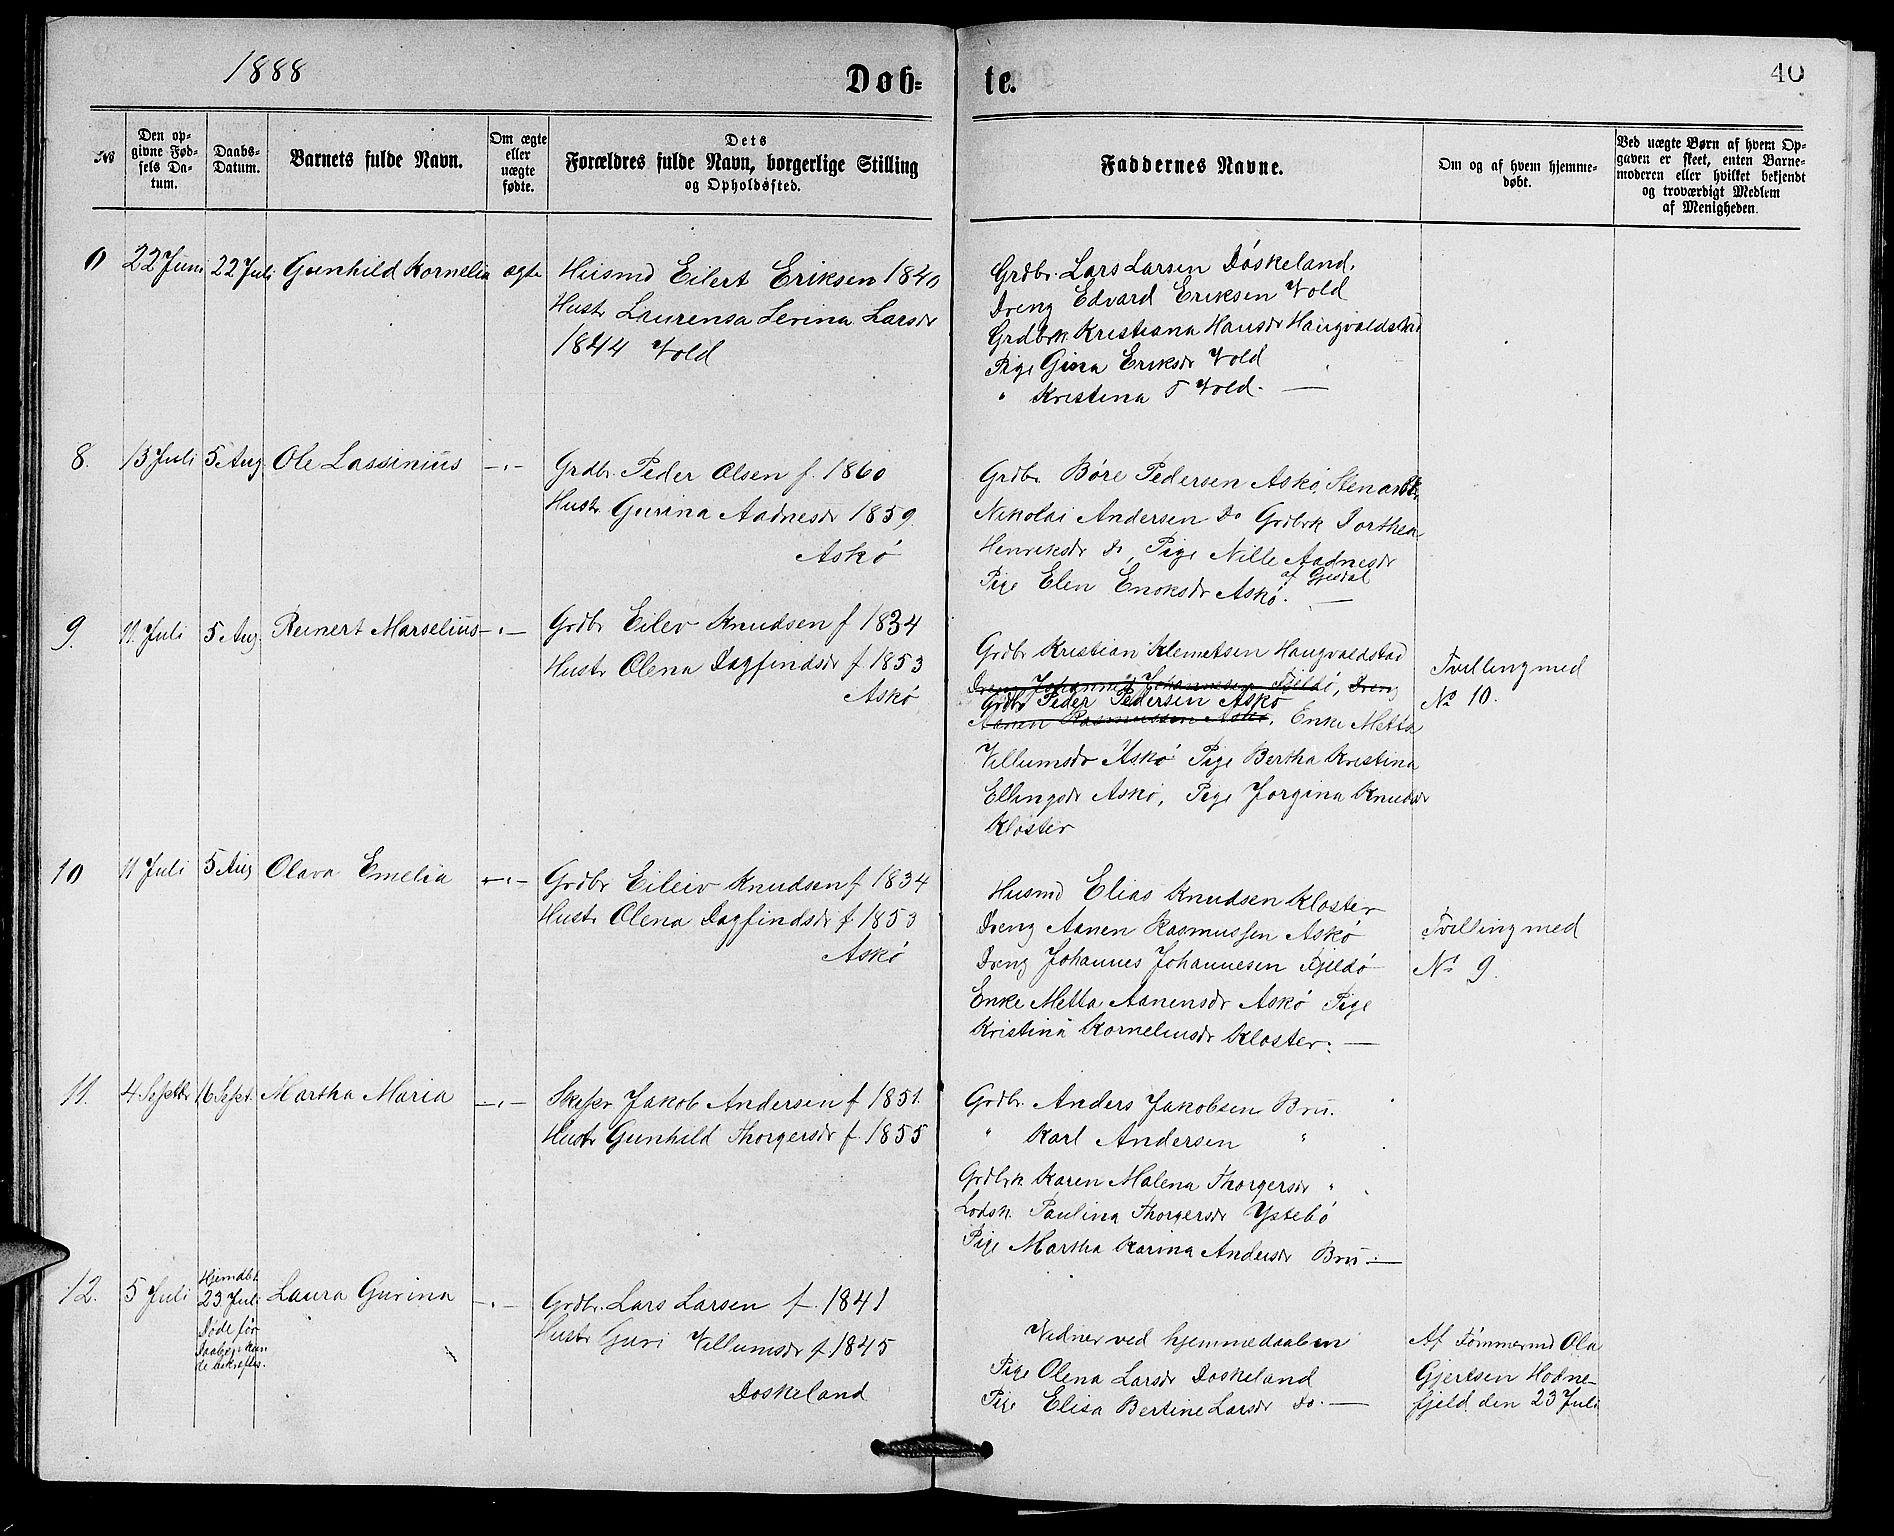 1888
Døb-
te.
40
No
Den op-
givne Fød-
sels Da-
tum.
Daabs-
Datum.
Barnets fulde Navn.
Om ægte
eller
uægte
fødte.
Dets
Forældres fulde Navn, borgerlige Stilling
og Opholdssted.
Faddernes Navne.
Om og af hvem hjemme-
døbt.
Ved uægte Børn af hvem Op-
gaven er skeet, enten Barne-
moderen eller hvilket bekjendt
og troværdigt Medlem
af Menigheden.
22 Juni 22 Juli Gunhild Kornelia ægte
Husmd Eilert Eriksen 1840
Hustr Laurensa Serina Larsdr
1844 Vold
Grdbr. Lars Larsen Døskeland.
Dreng Edvard Eriksen Vold
Grdbrk Kristiana Hansdr Haugvaldstad
Pige Gina Eriksdr Vold
" Kristina T Vold. —
8. 13 Juli 5 Aug Ole Lassinius —"—
Grdbr. Peder Olsen f. 1860
Hustr. Gurina Aadnesdr 1859.
Askø
Grdbr Børe Pedersen Askø,
Nikolai Andersen Do Grdbrk Dorthea
Henriksdr Do, Pige Nille Aadnesdr
af Gjesdal
Pige Elen Enoksdr Askø. —
9. 11 Juli 5 Aug Reinert Marselius —"—
Grdbr Eilev Knudsen f 1834
Hustr Olena Dagfindsdr f. 1853
Askø
Grdbr Kristian Klemetsen Haugvaldstad
Dreng Johannes Johannesen Fjeldø, Dreng
Grdbr Peder Pedersen Askø
Aanen Rasmussen Askø, Enke Metta
Villumsdr Askø Pige Bertha Kristina
Ellingsdr Askø, Pige Jorgina Knudsdr
Kloster
Tvilling med
No 10.
10 11 Juli 5 Aug Olava Emelia —"—
Grdbr Eileiv Knudsen f 1834
Hustr Olena Dagfindsdr f 1853
Askø
Husmd Elias Knudsen Kloster
Dreng Aanen Rasmussen Askø
Dreng Johannes Johannesen Fjeldø
Enke Metta Aanensdr Askø Pige
Kristina Korneliusdr Kloster. —
Tvilling med
No 9.
11. 4 Septbr 16 Sept. Martha Maria —"—
Skipr Jakob Andersen f 1851.
Hustr Gunhild Thorgersdr f. 1855
Grdbr. Anders Jakobsen Bru.
" Karl Andersen "
Grdbrk Karen Malena Thorgersdr "
Lodsk. Paulina Thorgersdr Ystebø
Pige Martha Karina Andersdr Bru. —
12. 5 Juli
Hjemdbt
23 Juli
Døde før
Daaben kun
de bekræftes.
Laura Gurina —"—
Grdbr. Lars Larsen f. 1841
Hustr Guri Villumsdr f. 1845
Doskeland
Vidner ved hjemmedaaben
Pige Olena Larsdr Doskeland
Pige Elisa Bertine Larsdr Do. —
Af Tømmermd Ola
Gjertsen Hodne-
fjeld den 23 Juli